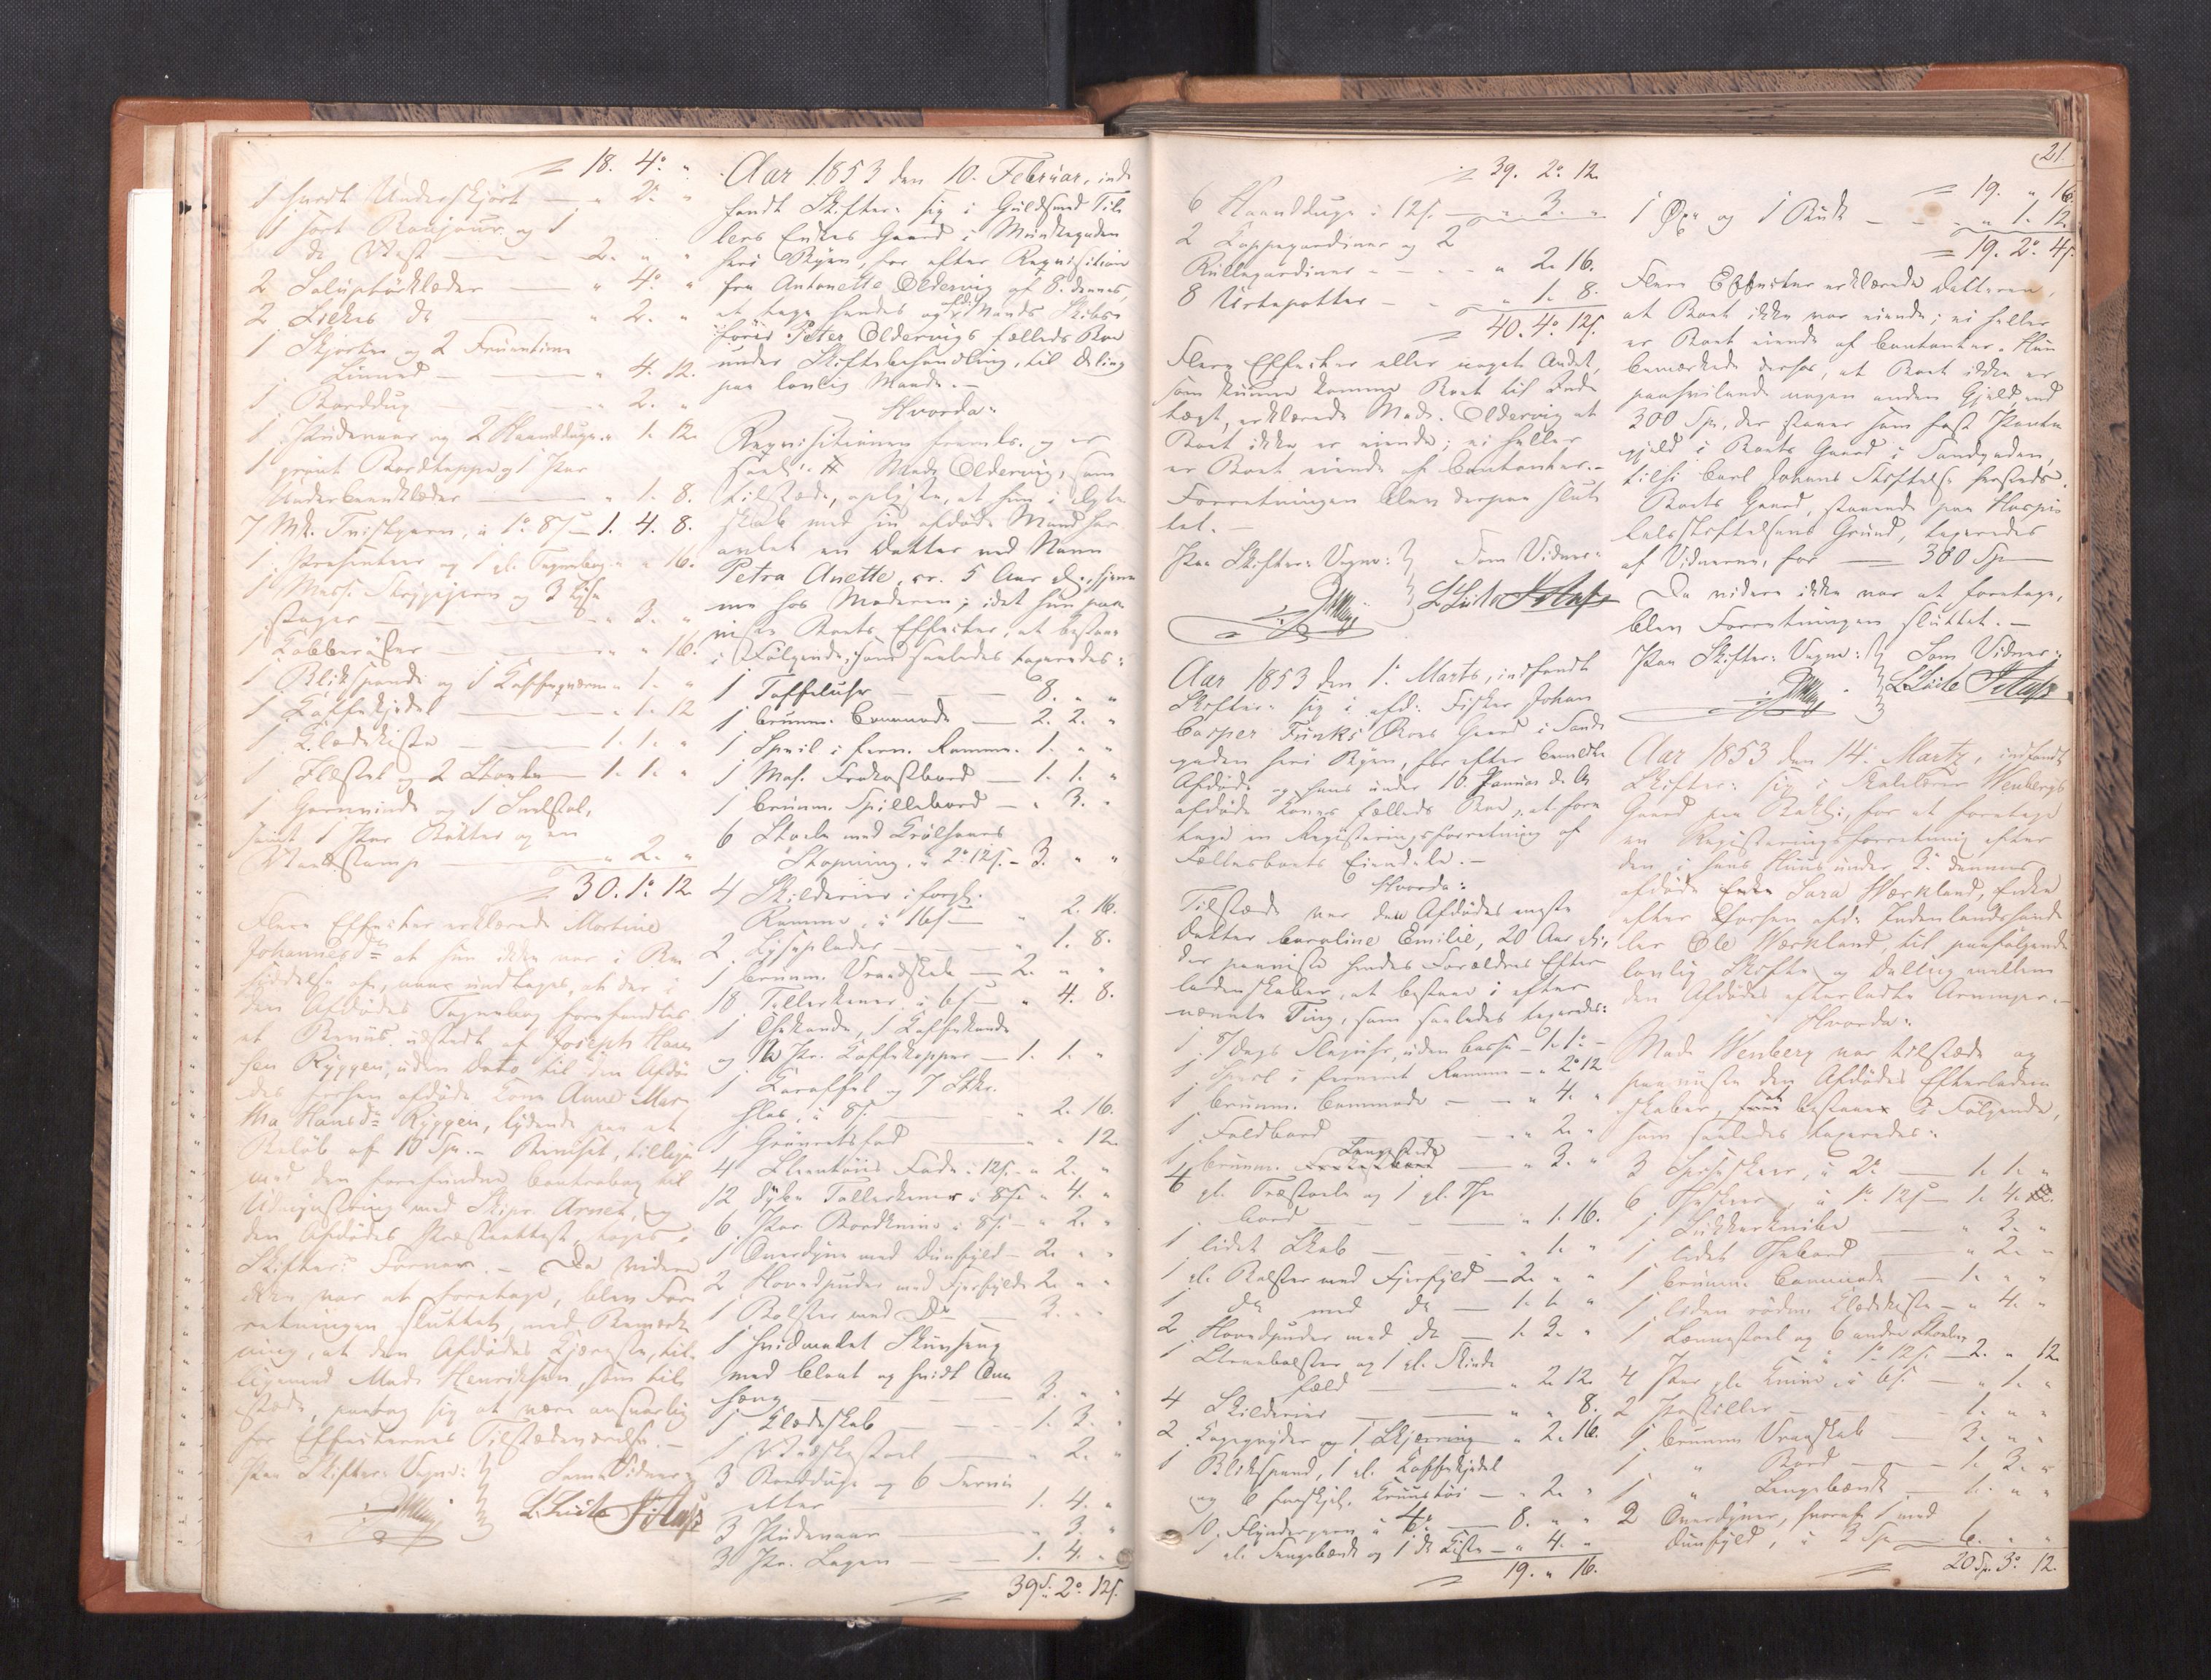 18. 4. "
1 hvidt Underskjørt — " 2. "
1 sort Bonjour og 1
do Vest — 2. " "
2 — " 4. "
2 do — " 2. "
1 Skjorter og 2 Fruentim
Linned — " 4. 12.
1 Borddug — " 2. "
1 Pudevaar og 2 Haandduge " 1. 12.
1 grønt Bordteppe og 1 Par
Underbeenklæder — " 1. 8.
7 Mk. Tvistgarn, à 1. 8 s — 1. 4. 8.
1 Presenteer og 1 gl. " " 16.
1 Mess. Strygejern og 3 Lyse
stager — " 3. "
1 Kobber — " " 16.
1 Blikspand og 1 Kaffeqværn " 1. "
1 Kaffekjedel — " 1. 12
1 Klædekiste — 1. 1. "
1 og 2 Stole — 1. 1. "
1 Garnvinde og 1
samt 1 Par Bøtter og en
Vandstamp — " 2. "
30. 1. 12
Flere Effecter erklærede Martine
Johannesdr. at hun ikke var i Be
siddelse af, naar undtages, at der i
den Afdødes forefandtes
et Beviis udstedt af Joseph Han
sen Ryggen, uden Dato til den Afdø
des forhen afdøde Kone Anne Mar
tha Hansdr. Ryggen, lydende paa et
Beløb af 10 Spr. — Beviset, tillige
med den forefundne Contrabog til
med Skipr. Arnet, og
den Afdødes Præsteattest, toges i
Skifter: Forvar. — Da videre
ikke var at foretage, blev For
retningen sluttet, med Bemærk
ning, at den Afdødes Kjæreste, til
ligemed Mad. Henriksen, som til
stede, paatog sig at være ansvarlig
for Effecternes Tilstedeværelse. —
Paa Skifter: Vegne: Som Vidner:
L. Lüdte
Aar 1853 den 10. Februar, ind
fandt Skifter: sig i Guldsmed Til
lers Enkes Gaard i Munkegaden
heri Byen, for efter Reqvisition
fra Antonette Eldervig af 8. dennes,
at tage hendes og Mands Skibs
fører Peter Eldervigs fælleds Boe
under Skiftebehandling, til Deling
paa lovlig Maade. —
Hvorda:
Reqvisitionen fremls. og er
saal: # Mad. Eldervig, som
tilstede, oplyste, at hun i Ægte
skab med sin afdøde Mand har
avlet en Datter ved Navn
Petra Anette, cr. 5 Aar gl., hjem
me hos Moderen; idet hun paa
viste Boets Effecter, at bestaae
i Følgende, som saaledes taxeredes:
1 Taffeluhr — 8. " "
1 bruunm. Commode — 2. 2. "
1 Speil i fern. Ramme. 1. " "
1 Mah. Frokostbord — 1. 1. "
1 bruunm. Spillebord — " 3. "
6 Stole med Krølhaars
Stopning, à 2. 12 s. — 3. " "
4 Skilderier i forgl.
Ramme, à 16 s — " 2. 16.
2 Lyseplader — " 1. 8.
1 bruunm. Vraaskab — 2. " "
18 Tallerkener à 6 s — " 4. 8.
1 Theekande, 1 Kaffekande
og 12 Pr. Kaffekopper — 1. 1. "
1 Karaffel og 7 Stkr.
Glas, à 8 s. — " 2. 16.
1 Grønsetsfad — " " 12.
4 Steentøis Fade à 12 s. — " 2. "
12 dybe Tallerkener à 8 s. " 4. "
6 Par Bordknive à 8 s. — " 2. "
1 Overdyne med Duunfyld — 2. " "
2 Hovedpuder med Fjerfyld 2. " "
1 Bolster med Do — 3. " "
1 hvidmalet Skuvseng
med blaat og hvidt Om
hæng — 3. " "
1 Klædeskab — 1. 3. "
1 Vadskestoel — " 2. "
3 Bordduge og 6 Servi
etter — 1. 4. "
3 Pudevaar — " 3. "
3 Pr. Lagen — 1. 4. "
39 S. 2. 12 s.
39. 2. 12.
6 Haandduge à 12 s. — " 3. "
2 Kappegardiner og 2
Rullegardiner — " 2. 16.
8 Urtepotter — " 1. 8.
40. 4. 12 s.
Flere Effecter eller noget Andet,
som kunne komme Boet til Ind
tægt, erklærede Mad. Eldervig at
Boet ikke er eiende; ei heller
er Boet eiende af Contanter. —
Forretningen blev derpaa slut
tet. —
Paa Skifter: Vegne: Som Vidner:
L. Lüdte
Aar 1853 den 1. Marts, indfandt
Skifter: sig i afd. Fisker Johan
Casper Funks Boes Gaard i Sand
gaden heri Byen, for efter bemeldte
Afdøde og hans under 10. Januar d. A.
afdøde Kones fælleds Boe, at fore
tage en Registeringsforretning af
Fællesboets Eiendele. —
Hvorda:
Tilstede var den Afdødes yngste
Datter Caroline Emilie, 20 Aar gl.,
der paaviste hendes Forældres Efter
ladenskaber, at bestaae i efter
nævnte Ting, som saaledes taxeredes:
1 7 Dags Slaguhr, uden Casse — 1. 1. "
1 Speil i ferneret Ramme — " 2. 12
1 bruunm. Commode — " 4. "
1 Foldbord — " 2. "
1 bruunm. — " 3. "
6 gl. Træstole og 1 gl. Thee
bord — " 1. 16.
1 lidet Skab — " 1. "
1 gl. Bolster med Fjerfyld — 2. " "
1 do med do — 1. 1. "
2 Hovedpuder med do — 1. 3. "
1 Steenbolster og 1 gl. Skind
fæld — " 2. 12.
4 Skilderier — " " 8.
2 Kagegryder og 1 Skjæring — " 2. 16.
1 Blikspand, 1 gl. Kaffekjedel
og 6 forskjel. Kruustøi — " 2. "
10 Flyndergarn à 4 — 8. " "
1 gl. Sengebænk og 1 do Kiste — " 4. "
19. " 16.
21.
19. " 16.
1 Øxe og 1 Bøtte — " 1. 12.
19. 2. 4 s.
Flere Effecter erklærede Datteren,
at Boet ikke var eiende; ei heller
er Boet eiende af Contanter. Hun
bemærkede derhos, at Boet ikke er
paahvilende nogen anden Gjeld, end
300 Spr, der staaer som fast Pante
gjeld i Boets Gaard i Sandgaden,
tilh. Carl Johans Stiftelse hersteds.
Boets Gaard, staaende paa Hospi
talsstiftelsens Grund, taxeredes
af Vidnerne, for — 300 Spr
Da videre ikke var at foretage,
blev Forretningen sluttet. —
Paa Skifter: Vegne: Som Vidner:
L. Lüdte
Aar 1853 den 14. Martz, indfandt
Skifter: sig i Wenbergs
Gaard paa Bakl:, for at foretage
en Registeringsforretning efter
den i hans Huus under 3. dennes
afdøde Enke Sara Værkland, Enke
efter forhen afd. Indenlandshand
ler Ole Værkland, til paafølgende
lovlig Skifte og Deling mellem
den Afdødes efterladte Arvinger. —
Hvorda:
Mad. Wenberg var tilstede og
paaviiste den Afdødes Efterladen
skaber, at bestaae i Følgende,
som saaledes taxeredes:
3 Spiseskeer, à 2 — 1. 1. "
6 Theskeer, à 1. 12 s — 1. 4. "
1 Sukkerknibe — " 3. "
1 lidet Thebord — " 2. "
1 bruunm. Commode — 1. " "
1 liden rødm. Klædekiste — " 4. "
1 Lænestoel og 6 andre Stole,
à 1. 12 s. — 2. " 12
4 Par gl. Knive, à 6 s. — " 1. "
2 — 1. " "
1 bruunm. Vraaskab — 3. " "
1 " Bord — 1. 3. "
1 " Sengebænk — 1. " "
2 Overdyner, hvoraf 1 med
Duunfyld, à 3 Spr — 6. " "
20 Sp. 3. 12.